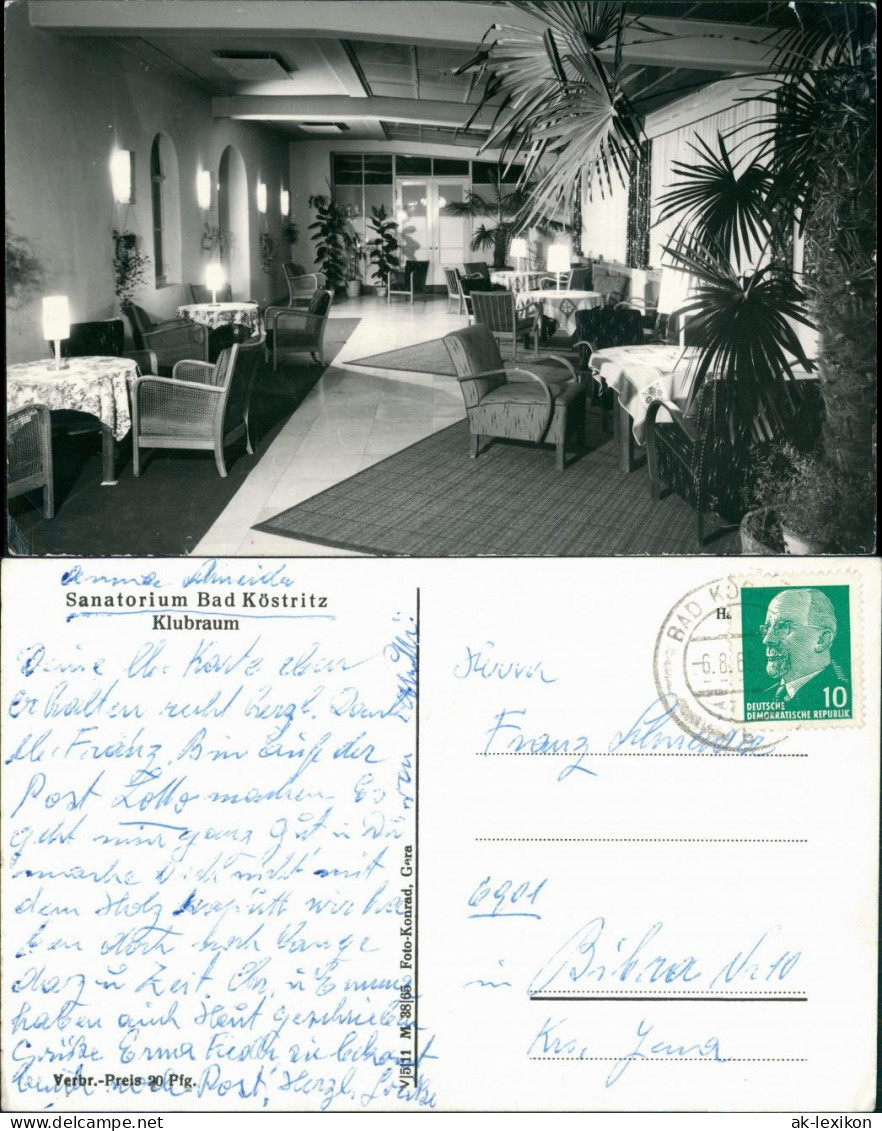 Anna Schneider
Sanatorium Bad Köstritz
Klubraum
Deine lb. Karte eben
erhalten recht herzl. Dank
lb. Franz. Bin auf der
Post Lotto machen Es
geht mir ganz gut, u Du
mache Dich nicht mit
dem Holz kaputt wir ha
ben doch noch lange
dazu Zeit.
haben auch Heut geschrieben
Grüße Erna Fiedler
noch Post, Herzl. Grüße
Verbr.-Preis 20 Pfg.
V/5/11 M 38/65 Foto-Konrad, Gera
BAD KÖ
-6.8.6
DEUTSCHE
DEMOKRATISCHE REPUBLIK
10
Herrn
Franz Schneider
6901
in Bibra Nr 10
Krs. Jena
ak-lexikon